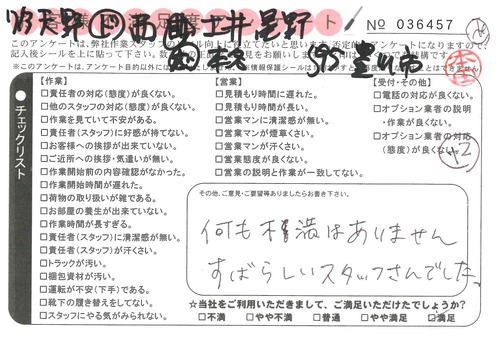 No 036457
このアンケートは、弊社作業スタッフの
記入後シールを上に貼って下さい。
チェックリスト
【作業】
□責任者の対応(態度)が良くない。
□他のスタッフの対応(態度)が良くない。
□作業を見ていて不安がある。
□責任者(スタッフ)に好感が持てない。
□お客様への挨拶が出来ていない。
□ご近所への挨拶・気遣いが無い。
□作業開始前の内容確認がなかった。
□作業開始時間が遅れた。
□荷物の取り扱いが雑である。
□お部屋の養生が出来ていない。
□作業時間が長すぎる。
□責任者(スタッフ)に清潔感が無い。
□責任者(スタッフ)が汗くさい。
□トラックが汚い。
□梱包資材が汚い。
□運転が不安(下手)である。
□靴下の履き替えをしてない。
□スタッフにやる気がみられない。
【営業】
□見積もり時間に遅れた。
□見積もり時間が長い。
□営業マンに清潔感が無い。
□営業マンが煙草くさい。
□営業マンが汗くさい。
□営業態度が良くない。
□営業の説明と作業が一致してない。
【受付・その他】
□電話の対応が良くない。
□オプション業者の説明
・作業が良くない。
□オプション業者の対応
(態度)が良くない。
その他、ご意見・ご要望等ありましたらお書き下さい。
何も不満はありません
すばらしいスタッフさんでした。
☆当社をご利用いただきまして、ご満足いただけたでしょうか?
□不満 □やや不満 □普通 □やや満足 ☑満足